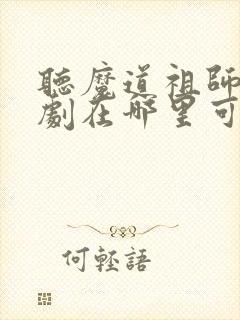 聽魔道祖師
劇在哪里可
何輕語